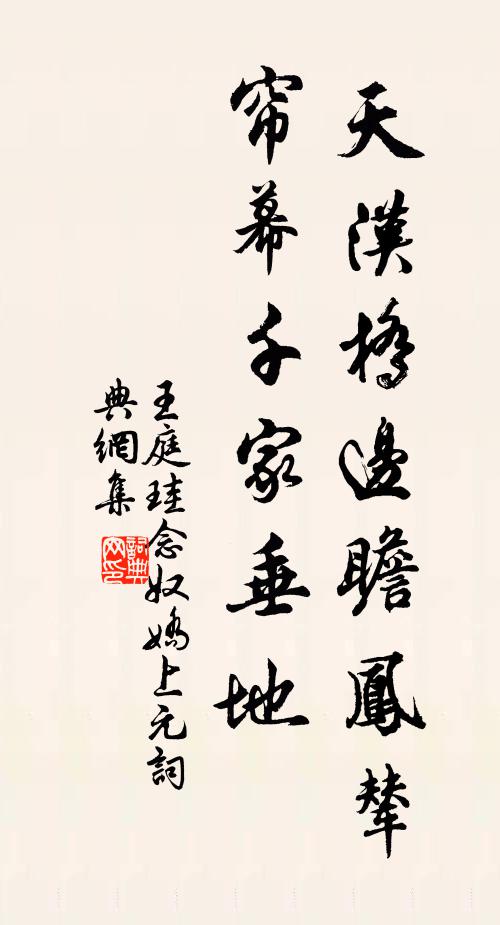 天漢橋邊瞻鳳輦
帘幕千家垂地
王庭珪念奴嬌上元詞
典網集
詞典网印